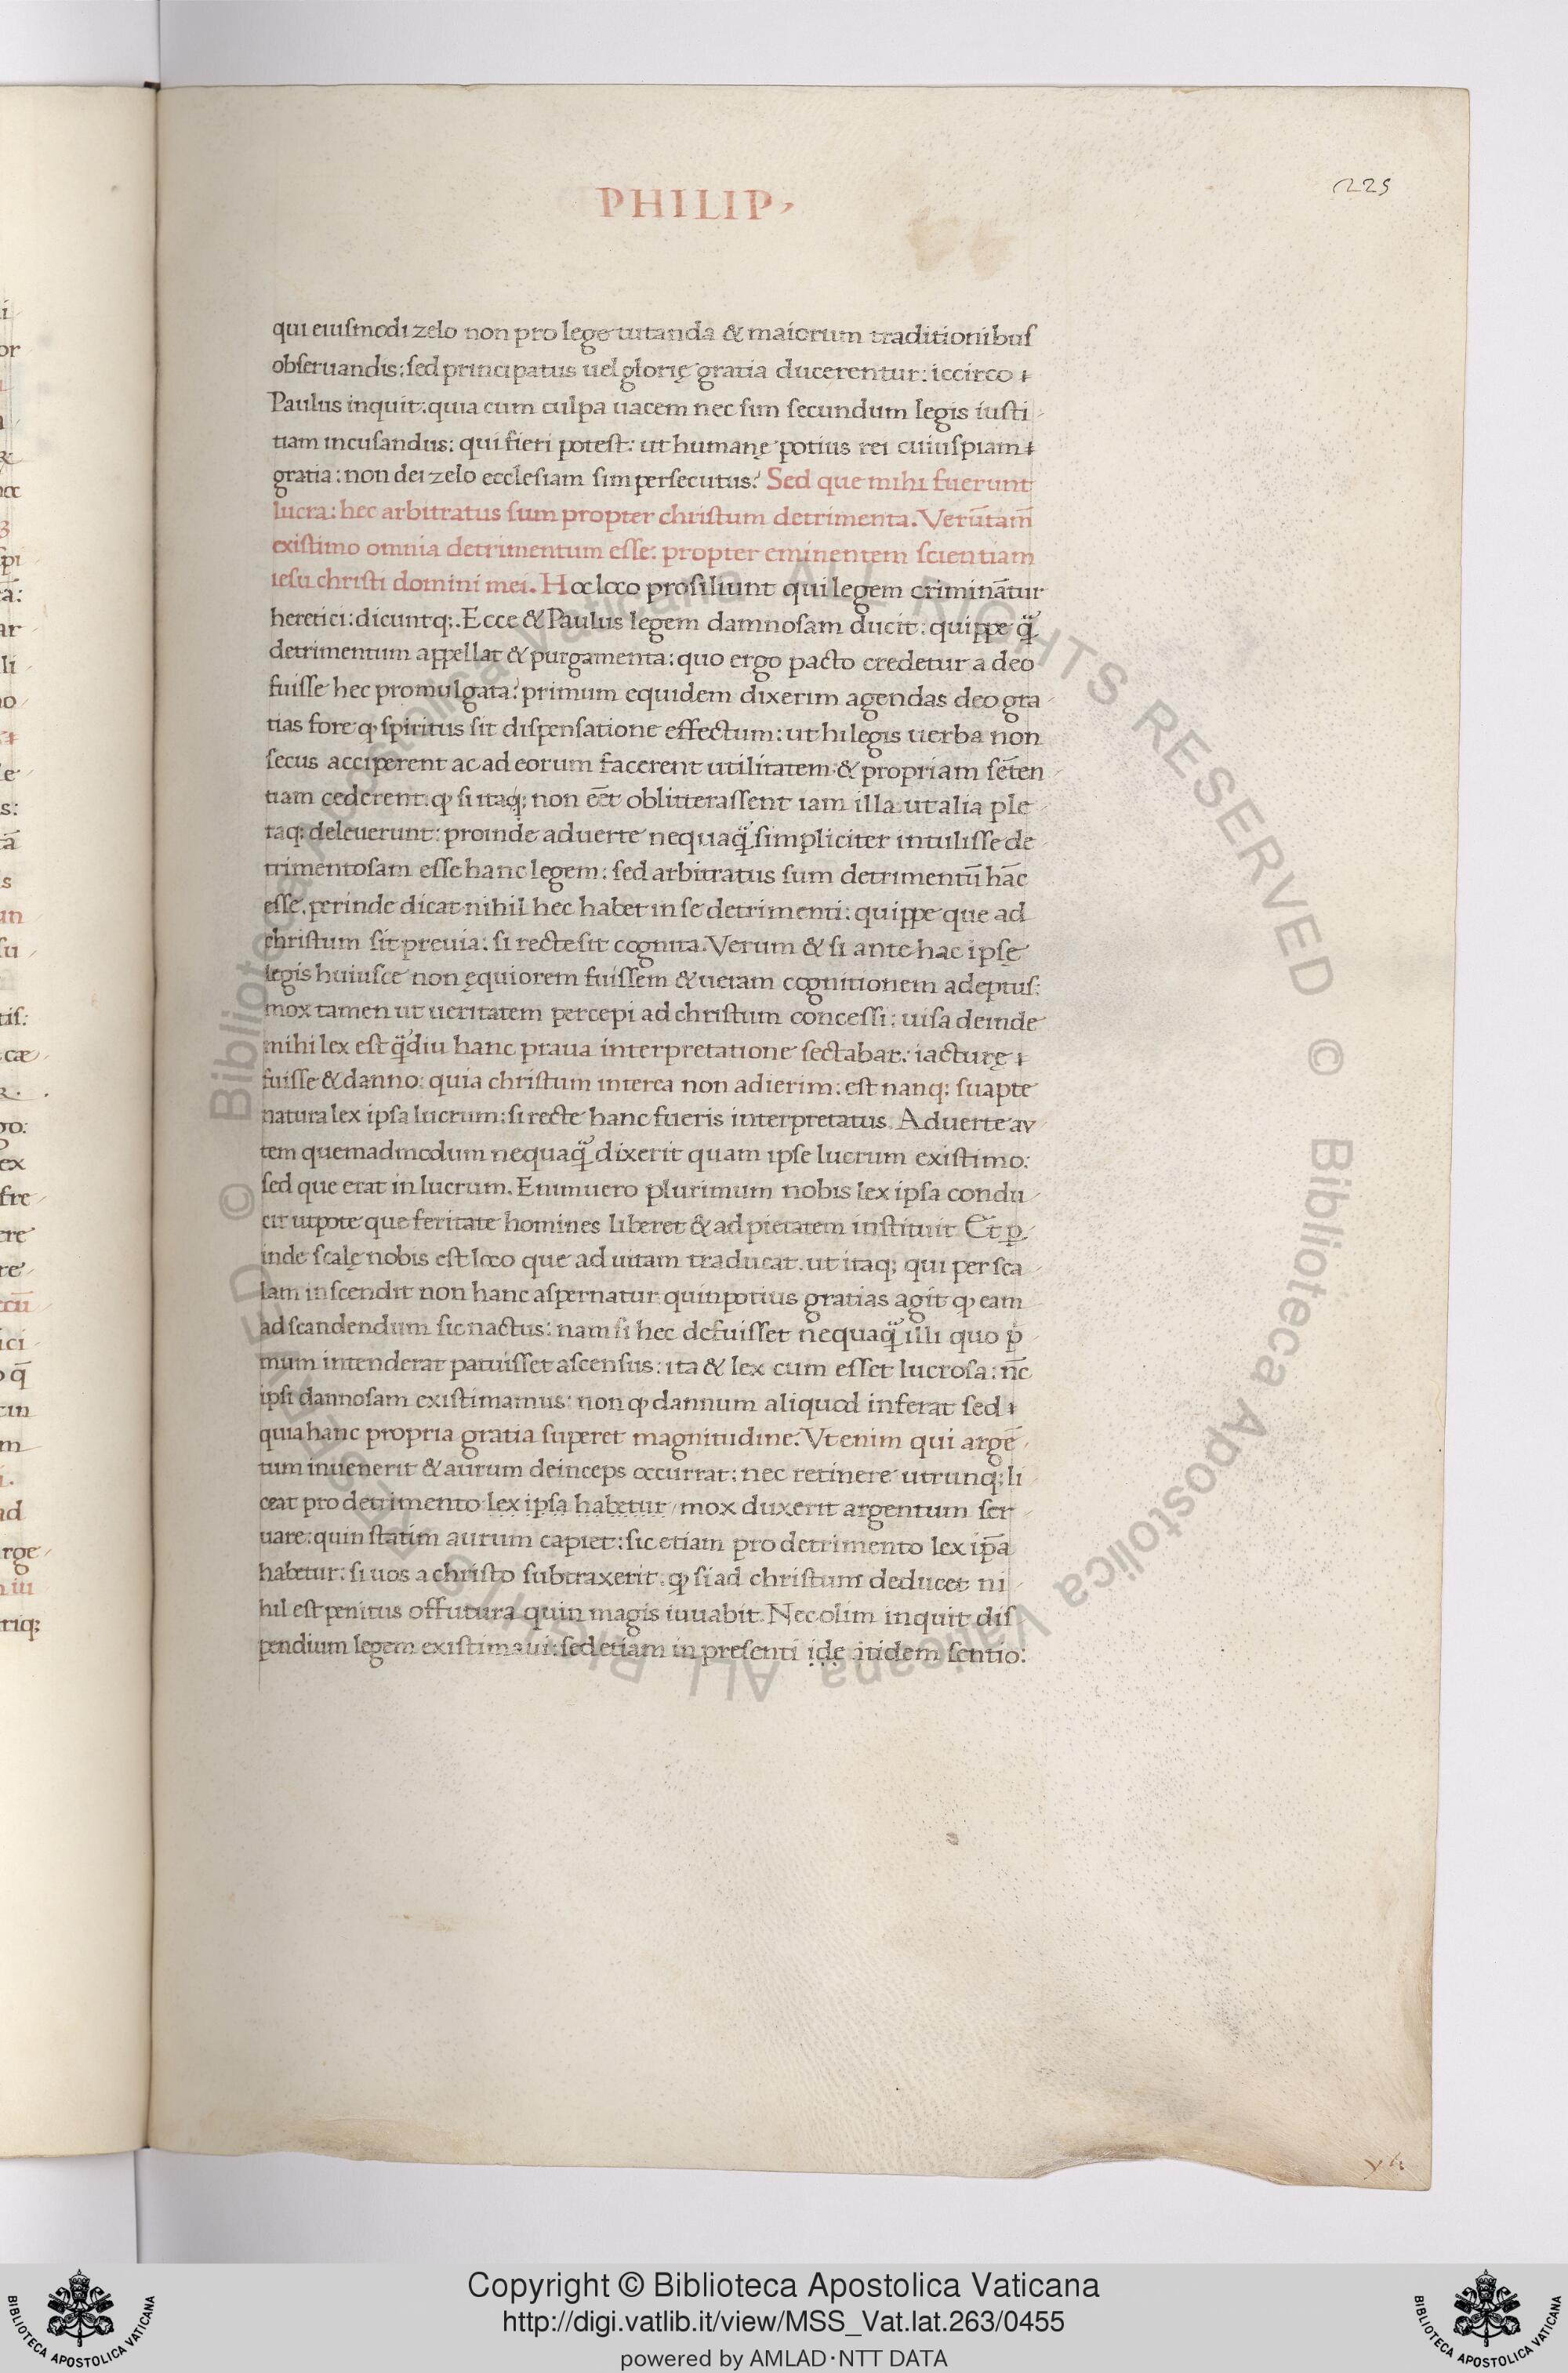 PHILIP,
225
qui eiusmodi zelo non pro lege tutanda & maiorum traditionibus
obseruandis: sed principatus uel glorię gratia ducerentur: iccirco
Paulus inquit: quia cum culpa uacem nec sim secundum legis iusti
tiam incusandus: qui fieri potest: ut humanę potius rei cuiuspiam
gratia: non dei zelo ecclesiam sim persecutus? Sed que mihi fuerunt
lucra: hec arbitratus sum propter christum detrimenta. Verūtam̄
existimo omnia detrimentum esse: propter eminentem scientiam
iesu christi domini mei. Hoc loco prosiliunt qui legem criminātur
heretici: dicuntq;. Ecce & Paulus legem damnosam ducit: quippe q̈̃
detrimentum appellat & purgamenta: quo ergo pacto credetur a deo
fuisse hec promulgata? primum equidem dixerim agendas deo gra
tias fore ꝙ spiritus sit dispensatione effectum: ut hi legis uerba non
secus acciperent ac ad eorum facerent utilitatem & propriam sēten
tiam cederent. ꝙ si itaq; non eēt oblitterassent iam illa ut alia ple
raq; deleuerunt: proinde aduerte nequaq̈̃ simpliciter intulisse de
trimentosam esse hanc legem: sed arbitratus sum detrimentū hāc
esse. perinde dicat nihil hec habet in se detrimenti: quippe que ad
christum sit preuia: si recte sit cognita. Verum & si ante hac ipsę
legis huiusce non ęquiorem fuissem & ueram cognitionem adeptus:
mox tamen ut ueritatem percepi ad christum concessi: uisa deinde
mihi lex est q̈̃diu hanc praua interpretatione sectabar: iacturę
fuisse & danno: quia christum interea non adierim: est nanq; suapte
natura lex ipsa lucrum: si recte hanc fueris interpretatus. Aduerte au
tem quemadmodum nequaq̈̃ dixerit quam ipse lucrum existimo:
sed que erat in lucrum. Enimuero plurimum nobis lex ipsa condu
cit utpote que feritate homines liberet & ad pietatem instituit Et ꝑ
inde scalę nobis est loco que ad uitam traducat. ut itaq; qui per sca
lam inscendit non hanc aspernatur quinpotius gratias agit ꝙ eam
ad scandendum sic nactus: nam si hec defuisset nequaq̈̃ illi quo p̄
mum intenderat patuisset ascensus: ita & lex cum esset lucrosa: nc̄
ipsi dannosam existimamus: non ꝙ dannum aliquod inferat sed
quia hanc propria gratia superet magnitudine. Vt enim qui argē
tum inuenerit & aurum deinceps occurrat: nec retinere utrunq; li
ceat pro detrimento lex ipsa habetur / mox duxerit argentum ser
uare: quin statim aurum capiet: sic etiam pro detrimento lex ip̄a
habetur: si uos a christo subtraxerit. ꝙ si ad christum deducet ni
hil est penitus offutura quin magis iuuabit. Nec olim inquit dis
pendium legem existimaui: sed etiam in presenti ide itidem sentio:
© Biblioteca Apostolica Vaticana ALL RIGHTS RESERVED © Biblioteca Apostolica Vaticana ALL RIGHTS RESERVED
Copyright © Biblioteca Apostolica Vaticana
http://digi.vatlib.it/view/MSS_Vat.lat.263/0455
powered by AMLAD·NTT DATA
BIBLIOTECA APOSTOLICA VATICANA
BIBLIOTECA APOSTOLICA VATICANA